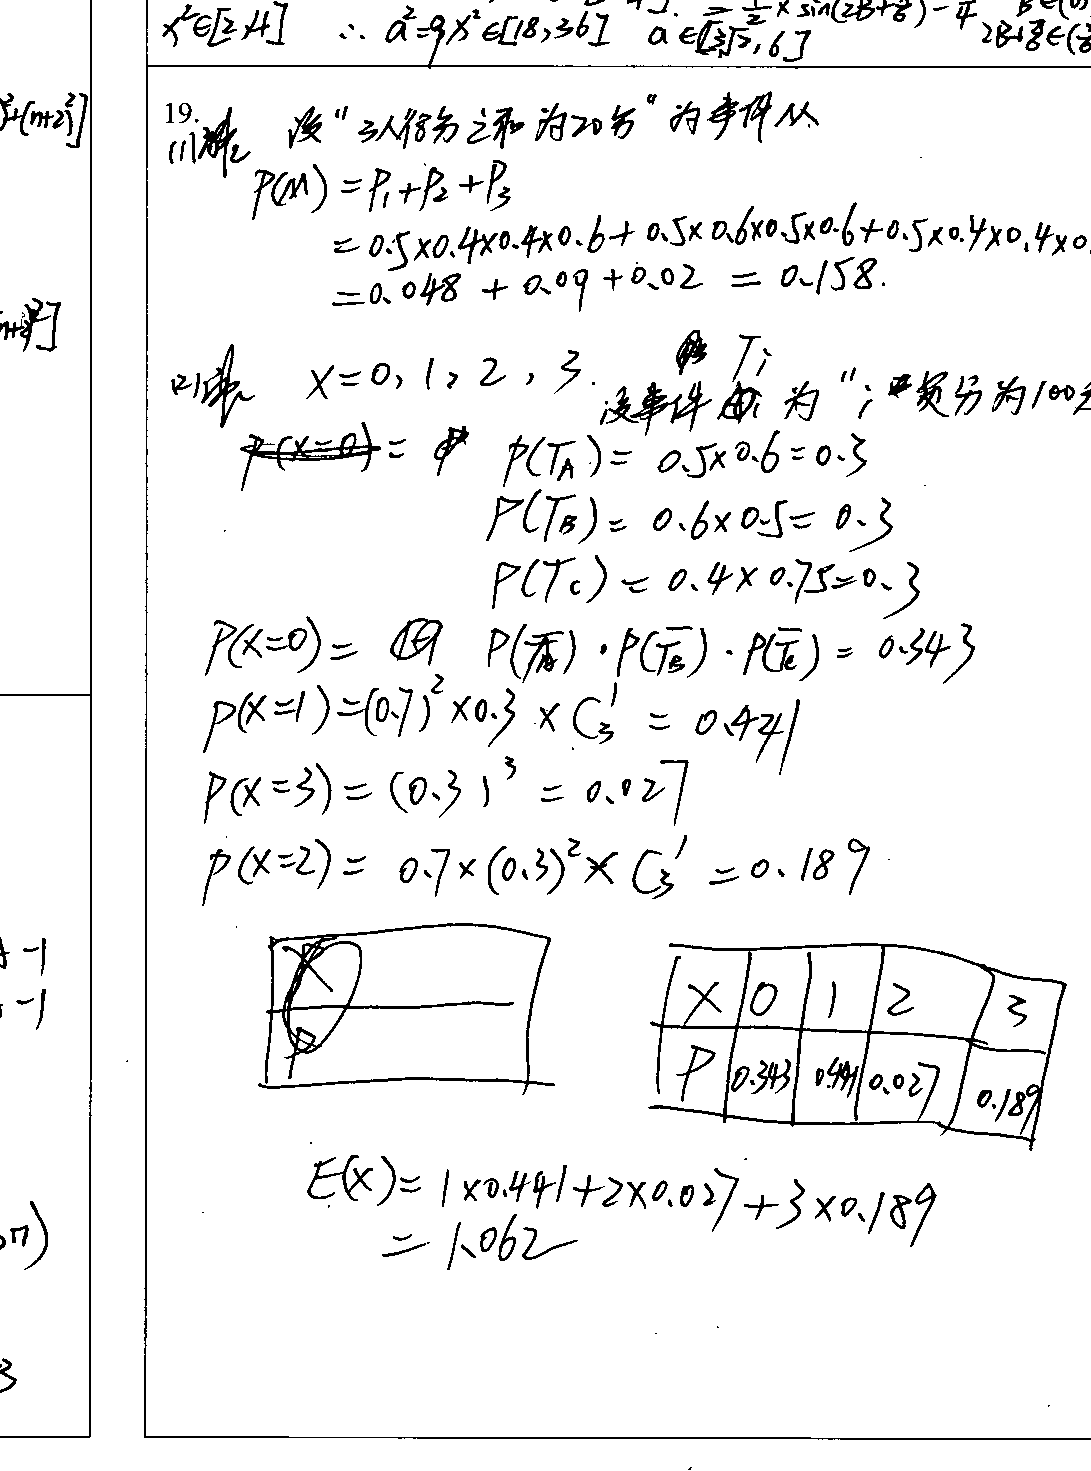 x²∈[2,4] ∴ a²=9x²∈[18,36] a∈[3√2,6]
+(n+2)²]
19.
(1)解: 设"3人得分之和为20分"为事件M
P(M)=P₁+P₂+P₃
=0.5×0.4×0.4×0.6+0.5×0.6×0.5×0.6+0.5×0.4×0.4×0.
=0.048+0.09+0.02=0.158.
(2)解: X=0,1,2,3. Ti
设事件 为"i 质分为100分
P(X=0)=
P(T_A)=0.5×0.6=0.3
P(T_B)=0.6×0.5=0.3
P(T_C)=0.4×0.75=0.3
P(X=0)= P(T̄_A)·P(T̄_B)·P(T̄_C)=0.343
P(X=1)=(0.7)²×0.3×C₃¹=0.441
P(X=3)=(0.3)³=0.027
P(X=2)=0.7×(0.3)²×C₃¹=0.189
-1
-1
X 0 1 2 3
P 0.343 0.441 0.027 0.189
E(X)=1×0.441+2×0.027+3×0.189
=1.062
3